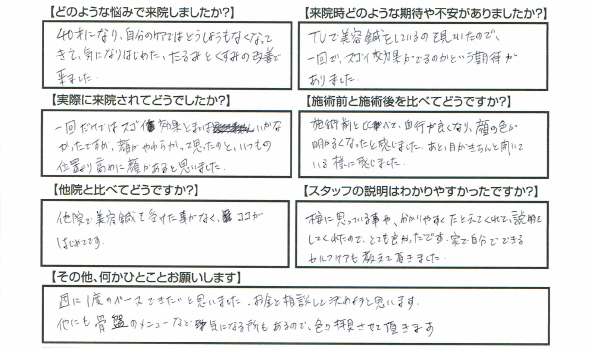 【どのような悩みで来院しましたか?】
40才になり、自分のケアではどうしようもなくなって
きて、気になりはじめた、たるみとくすみの改善で
来ました。
【来院時どのような期待や不安がありましたか?】
TVで美容鍼をしているのを見ていたので、
一回で、スゴイ効果がでるのかという期待が
ありました。
【実際に来院されてどうでしたか?】
一回だけではスゴイ効果とまではいかな
かったですが、顔がやわらかくて見たのといつもの
位置より高めに顔があると思いました。
【施術前と施術後を比べてどうですか?】
施術前と比べて、血行が良くなり、顔の色が
明るくなったと感じました。あと、目がきちんと開いて
いる様に感じました。
【他院と比べてどうですか?】
他院で美容鍼を受けた事がなく、ココが
はじめてです。
【スタッフの説明はわかりやすかったですか?】
様に思っている事や、わかりやすくたとえてくれて、説明を
してくれたので、とても良かったです。家で自分でできる
セルフケアも教えて頂きました。
【その他、何かひとことお願いします】
週に1度のペースできたいと思いました。お金と相談して決めようと思います。
他にも骨盤のメニューなど気になる所もあるので、色々授させて頂きます